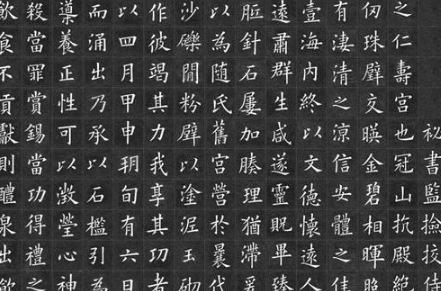 秘書監撿挍侍
之仁壽宮也冠山抗殿絕
仞珠璧交暎金碧相暉照
有淒清之涼信安體之佳
壹海內終以文德懷遠人
遠肅群生咸遂靈貺畢臻
胝針石屢加腠理猶滯爰
以為隨氏舊宮營於曩代
沙礫間粉壁以塗泥玉砌
作彼竭其力我享其功者
以四月甲申朔旬有六日
而涌出乃承以石檻引為
導養正性可以澂瑩心神
殺當罪賞錫當功得禮之
飲食不貢獻則醴泉出飲